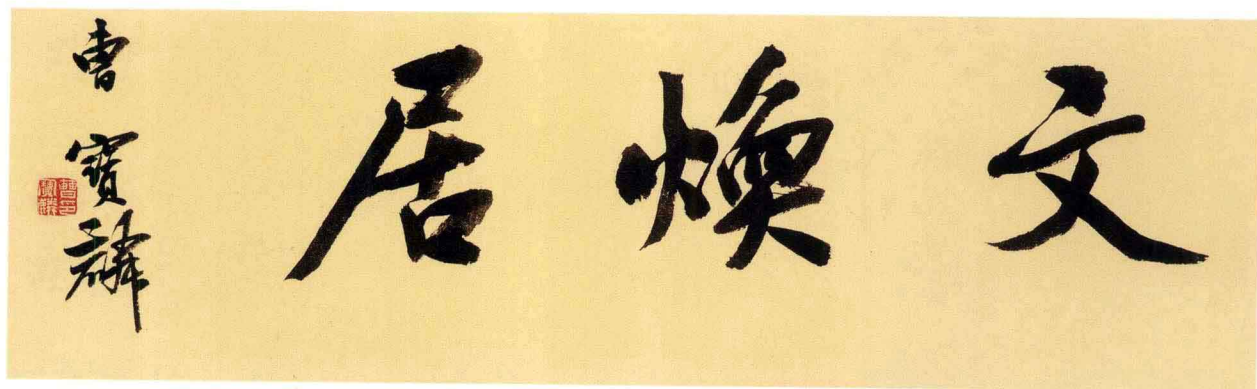 文煥居
曹寶麟
曹寶麟印